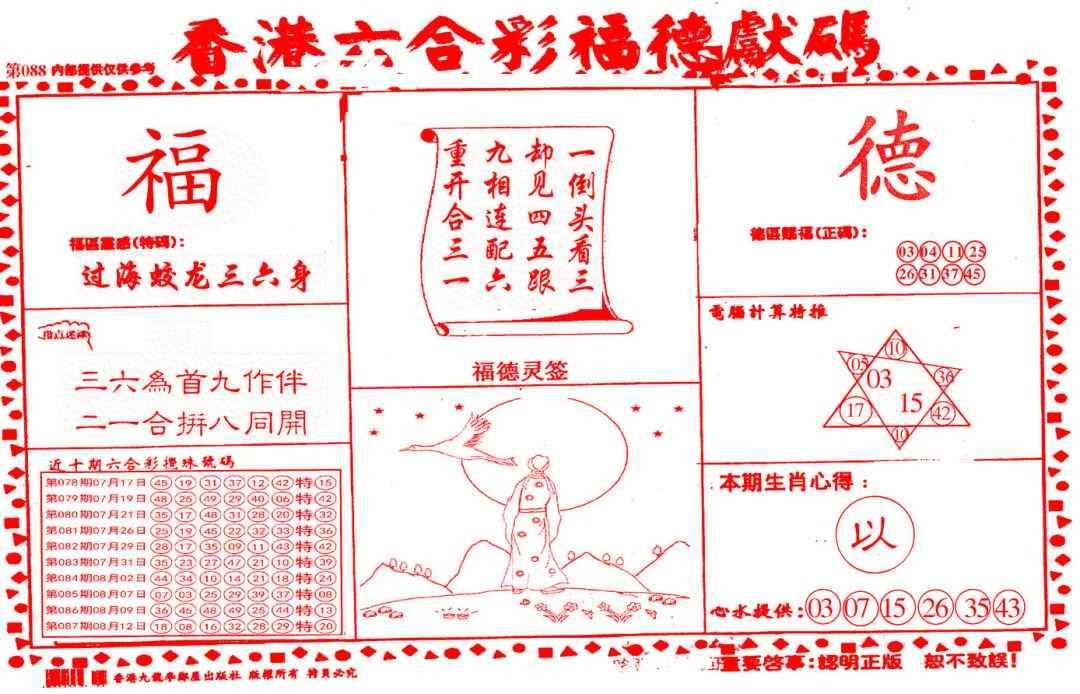 香港六合彩福德獻碼
第088 内部提供仅供参考
福
福區靈感(特碼):
过海蛟龙三六身
指点迷津
三六為首九作伴
二一合拼八同開
近十期六合彩攪珠號碼
第078期07月17日 45 19 31 37 12 42 特 15
第079期07月19日 48 25 49 29 40 06 特 42
第080期07月21日 35 17 48 31 28 20 特 32
第081期07月26日 25 19 45 22 32 33 特 36
第082期07月29日 28 17 35 09 11 43 特 42
第083期07月31日 35 23 27 47 21 10 特 39
第084期08月02日 44 34 10 14 21 18 特 24
第085期08月07日 07 03 25 29 39 37 特 08
第086期08月09日 36 45 48 49 25 44 特 13
第087期08月12日 18 08 16 32 28 29 特 20
一倒头看三
却见四五跟
九相连配六
重开合三一
福德灵签
德
德區賜福(正碼):
03 04 11 25
26 31 37 45
電腦計算特推
10
05 03 36
17 15 42
10
本期生肖心得:
以
心水提供: 03 07 15 26 35 43
香港九龍
出版社 版權所有
必究
重要啓事:認明正版 恕不致誤!